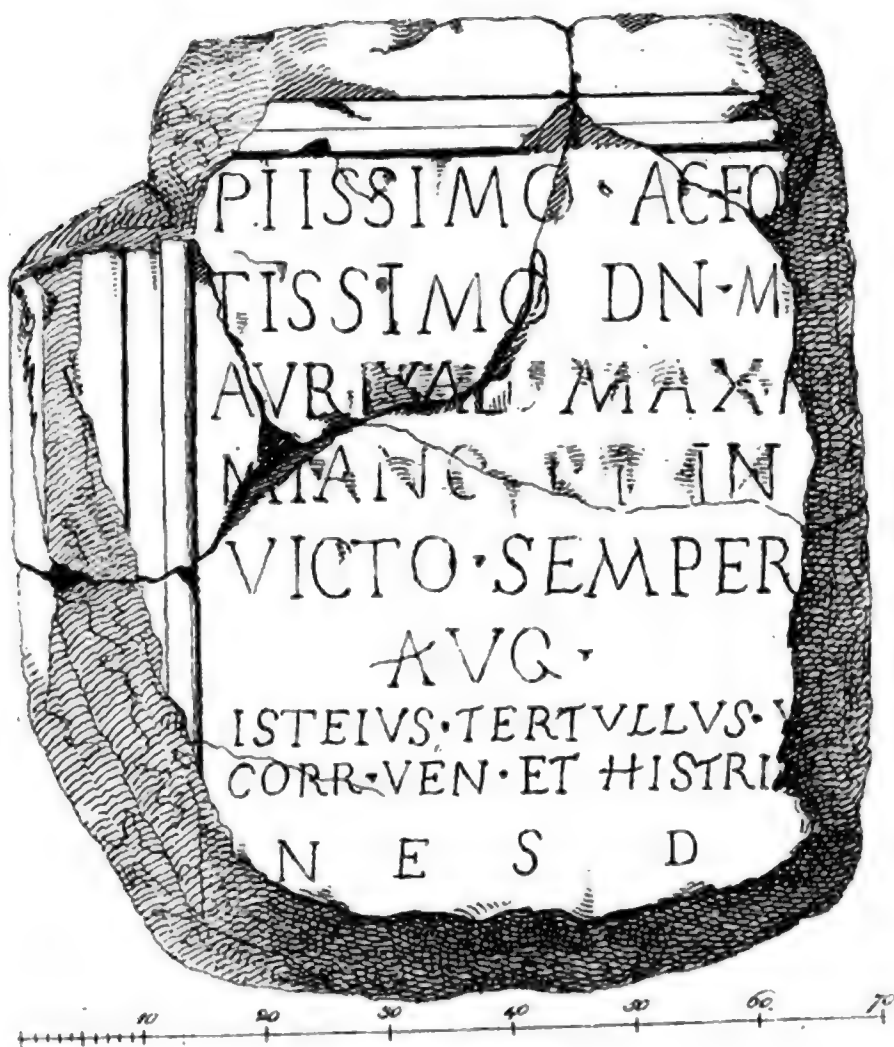 PIISSIMO · AC FO
TISSIMO DN · M
AVR VAL MAX
MIANO ET IN
VICTO · SEMPER
AVG ·
ISTEIVS · TERTVLLVS ·
CORR · VEN · ET HISTRI
N E S D
10 20 30 40 50 60 70